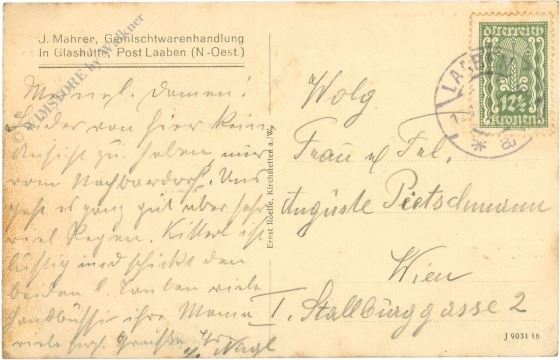 J. Mahrer, Gemischtwarenhandlung
in Glashütte, Post Laaben (N.-Oest.)
© WIMSTORE by Walkner
Meine Damen!
Leider von hier kein
Ansicht zu haben, nur
vom Nachbardorf. Uns
geht es ganz gut aber sehr
viel Regen. Kitterl ist
lustig und schickt den
beiden l. Tanten viele
Handbussi ihre Mama
viele Grüße Ihre
Nagl
Ernst Roelle, Kirchstetten a./W.
österreich
12½
kronen
LAABEN
Wolg.
Frau u. Frl.
Auguste Pietschmann
Wien
I. Stallburggasse 2
J 9031 16